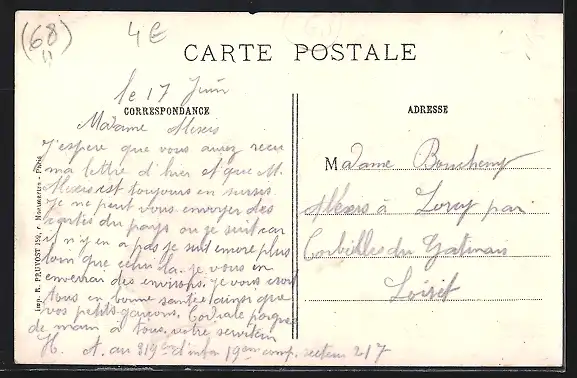 (68)
11
4€
CARTE POSTALE
le 17 Juin
CORRESPONDANCE
Madame Alexis
J'espere que vous avez recu
ma lettre d'hier et que M.
Alexis est toujours en sursis
Je ne peut vous envoyer des
cartes du pays ou je suit car
il n'y en a pas je suit encore plus
loin que celui la. je vous en
enverrai des environs. Je vous croit
tous en bonne santée ainsi que
vos petits garçons. Cordiale poignée
de main a tous. votre serviteur
H. A. au 319e d'infan 19em comp. secteur 217
ADRESSE
Madame Bouchemy
Alexis à Lorcy par
Corbeilles du Gatinais
Loiret
Imp. R. PRUVOST 159, r Montmartre - Paris